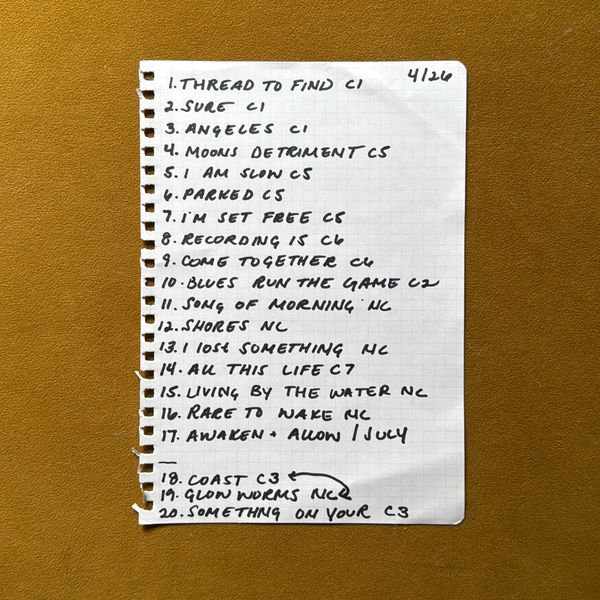 4/26
1. THREAD TO FIND C1
2. SURE C1
3. ANGELES C1
4. MOONS DETRIMENT C5
5. I AM SLOW C5
6. PARKED C5
7. I'M SET FREE C5
8. RECORDING 15 C6
9. COME TOGETHER C6
10. BLUES RUN THE GAME C2
11. SONG OF MORNING NC
12. SHORES NC
13. I lost SOMETHING NC
14. ALL THIS LIFE C7
15. LIVING BY THE WATER NC
16. RARE TO WAKE NC
17. AWAKEN + ALLOW / JULY
—
18. COAST C3
19. GLOW WORMS NC
20. SOMETHNG ON YOUR C3